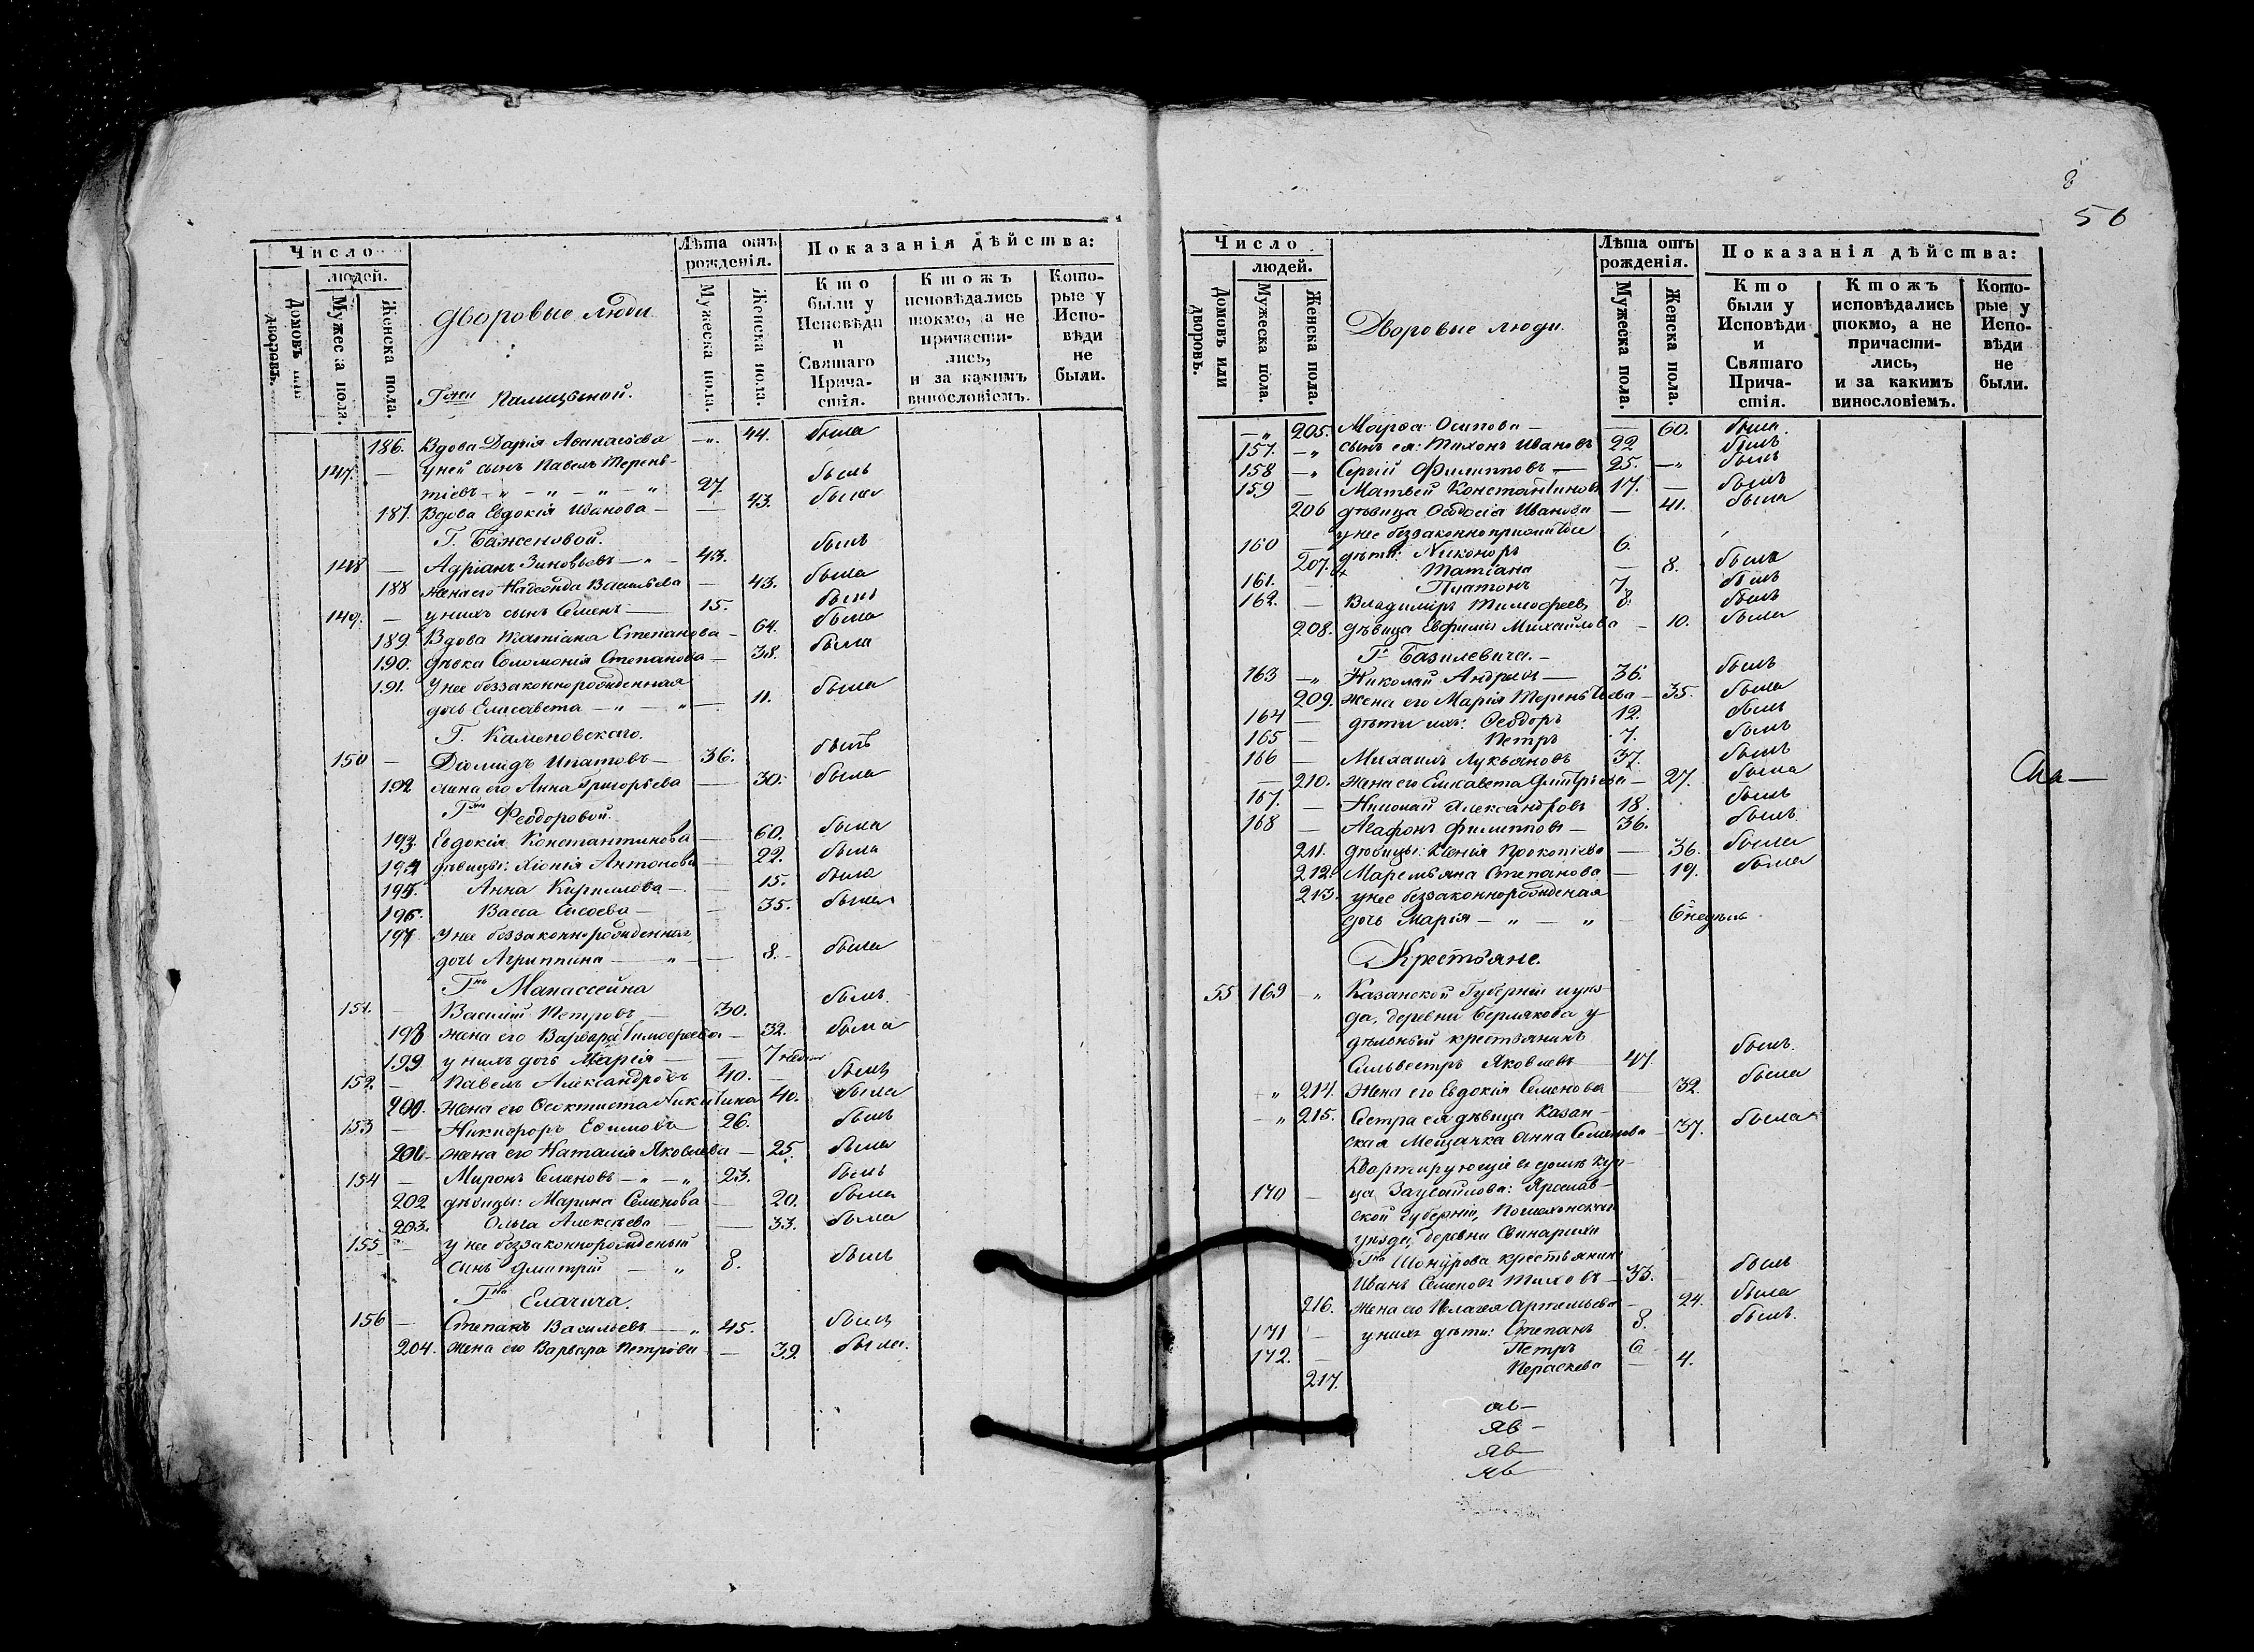 Число
людей.
Домовъ или дворовъ.
Мужеска пола.
Женска пола.
Дворовые люди
Лѣта отъ рожденія.
Мужеска пола.
Женска пола.
Показанія дѣйства:
Кто были у Исповѣди и Святаго Причастія.
Ктожъ исповѣдались токмо, а не причастились, и за какимъ винословіемъ.
Которые у Исповѣди не были.
Гжи Палицыной.
186. Вдова Дарія Аѳанасіева — 44. была
147. — у ней сынъ Павелъ Терень-
тіевъ 27. былъ
187. Вдова Евдокія Иванова — 43. была
Г. Баженовой.
148 — Адріанъ Зиновьевъ — 43. былъ
188 жена его Надежда Васильева — 43. была
149. — у нихъ сынъ Семенъ — 15. былъ
189. Вдова Татіана Степанова — 64. была
190. дѣвка Соломонія Степанова — 38. была
191. У нее беззаконнорожденная
дочь Елисавета — 11. была
Г. Каменовскаго.
150 — Діомидъ Ипатовъ — 36. былъ
192 жена его Анна Григорьева — 30. была
Гжи Феодоровой.
193. Евдокія Константинова — 60. была
194 дѣвицы: Хіонія Антонова — 22. была
195. Анна Кириллова — 15. была
196. Васса Сысоева — 35. была
197 У нее беззаконнорожденная
дочь Агриппина — 8. была
Гна Манассеина
151. — Василій Петровъ — 30. былъ
198 жена его Варвара Тимоѳеева — 32. была
199 у нихъ дочь Марія — 7 недѣль
152. — Павелъ Александровъ 40. — былъ
200. Жена его Ѳеоктиста Никитина 40. была
153 — Никифоръ Ефимовъ 26. былъ
201. жена его Наталія Яковлева — 25. была
154 — Миронъ Семеновъ — 23. былъ
202 дѣвицы: Марина Семенова — 20. была
203. Ольга Алексѣева — 33. была
155 — у нее беззаконнорожденый
сынъ Дмитрій — 8. былъ
Гна Елагича.
156 — Степанъ Васильевъ — 45. былъ
204. жена его Варвара Петрова — 39. была.
8
56
Число
людей.
Домовъ или дворовъ.
Мужеска пола.
Женска пола.
Дворовые люди.
Лѣта отъ рожденія.
Мужеска пола.
Женска пола.
Показанія дѣйства:
Кто были у Исповѣди и Святаго Причастія.
Ктожъ исповѣдались токмо, а не причастились, и за какимъ винословіемъ.
Которые у Исповѣди не были.
— 205. Марѳа Осипова — 60. была.
157. — сынъ ея: Тихонъ Ивановъ 22 былъ
158 — Сергій Филипповъ — 25. — былъ
159 — Матвей Константиновъ 17. — былъ
206 дѣвица Ѳеодосія Иванова — 41. была
у нее беззаконноприжитые
160 — дѣти: Никоноръ 6.
207. Татіана — 8. была
161. — Платонъ 7. былъ
162. — Владиміръ Тимоѳеевъ 8. былъ
208. дѣвица Евфимія Михайлова — 10. была
Г. Базилевича. —
163 — Николай Андреевъ — 36. былъ
209. жена его Марія Терентьева — 35. была
164 — дѣти ихъ: Ѳеодоръ 12. былъ
165 — Петръ 7. былъ
166 — Михаилъ Лукьяновъ 37. былъ
— 210. жена его Елисавета Дмитріева — 27. была
167. — Николай Александровъ 18. былъ
168 — Агафонъ Филипповъ — 36. былъ
211. дѣвицы: Ксенія Прокопіева — 36. была
212. Маремьяна Степанова — 19. была
213. у нее беззаконнорожденая
дочь Марія — 6 недѣль.
Крестьяне.
55 169 — Казанской Губерніи уѣз-
да, деревни Берлякова у-
дѣльный крестьянинъ
Сильвестръ Яковлевъ 47. былъ.
— 214. Жена его Евдокія Семенова 32. была
— 215. Сестра ея дѣвица Казан-
ская Мещанка Анна Семенова — 37. была
Квартирующіе въ домѣ куп-
170 — ца Заусайлова: Ярослав-
ской губерніи, Пошехонскаго
уѣзда, деревни Свинарихи
Гна Шонурова крестьянинъ
Иванъ Семеновъ Тиховъ — 33. былъ
216. Жена его Пелагея Артемьева — 24. была
171 — у нихъ дѣти: Степанъ 8. былъ.
172. — Петръ 6
217. Параскева — 4.